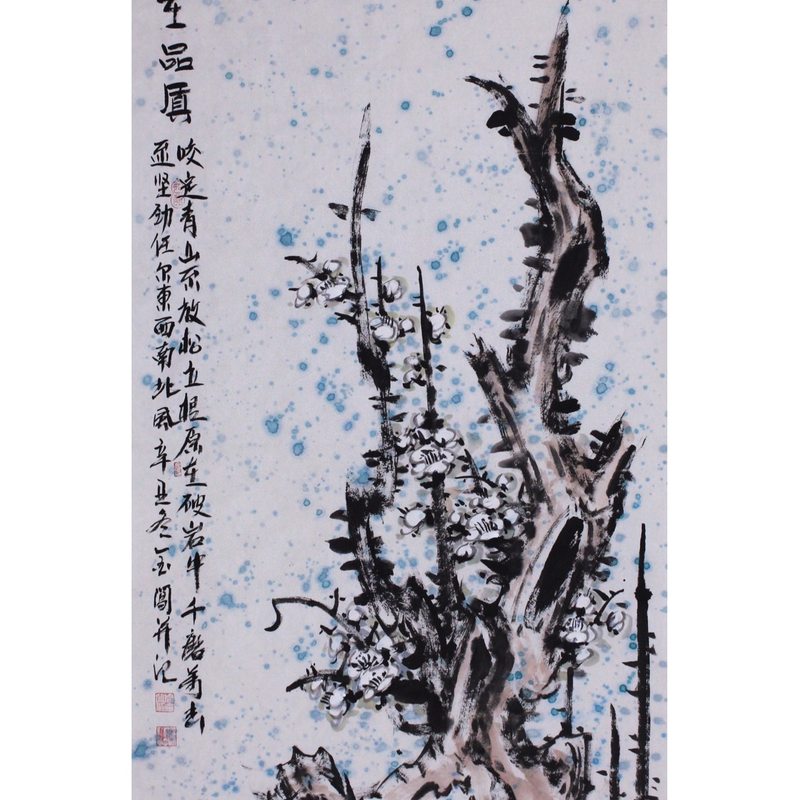 品
咬定青山不放松立根原在破岩中千磨萬击
還坚劲任尔東西南北風辛丑冬并记